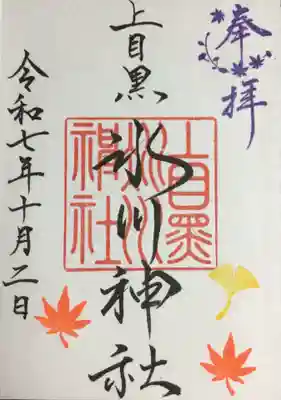 奉拝
上目黒
氷川神社
上目黒氷川神社
令和七年十月二日